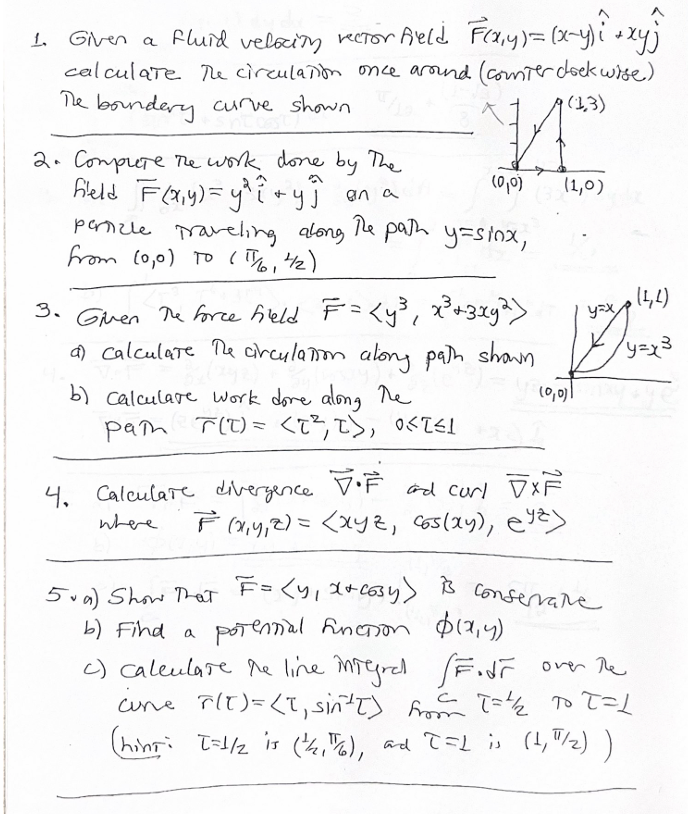 1. Given a fluid velocity vector field F⃗(x,y)=(x-y)î + xyĵ
calculate the circulation once around (counterclockwise)
The boundary curve shown
(1,3)
(0,0)
(1,0)
2. Compute the work done by the
field F⃗(x,y) = y²î + yĵ on a
particle traveling along the path y=sinx,
from (0,0) TO (π/6, 1/2)
3. Given the force field F⃗ = <y³, x³+3xy²>
a) calculate the circulation along path shown
b) calculate work done along the
path r⃗(t) = <t², t>, 0≤t≤1
y=x
(1,1)
y=x³
(0,0)
4. Calculate divergence ∇⃗·F⃗ and curl ∇⃗×F⃗
where F⃗(x,y,z) = <xyz, cos(xy), e^{yz}>
5. a) Show that F⃗=<y, x+cosy> is conservative
b) Find a potential function ϕ(x,y)
c) calculate the line integral ∫_C F⃗·dr⃗ over the
curve r⃗(t)=<t, sin⁻¹t> from t=1/2 TO t=1
(hint: t=1/2 is (1/2, π/6), and t=1 is (1, π/2))